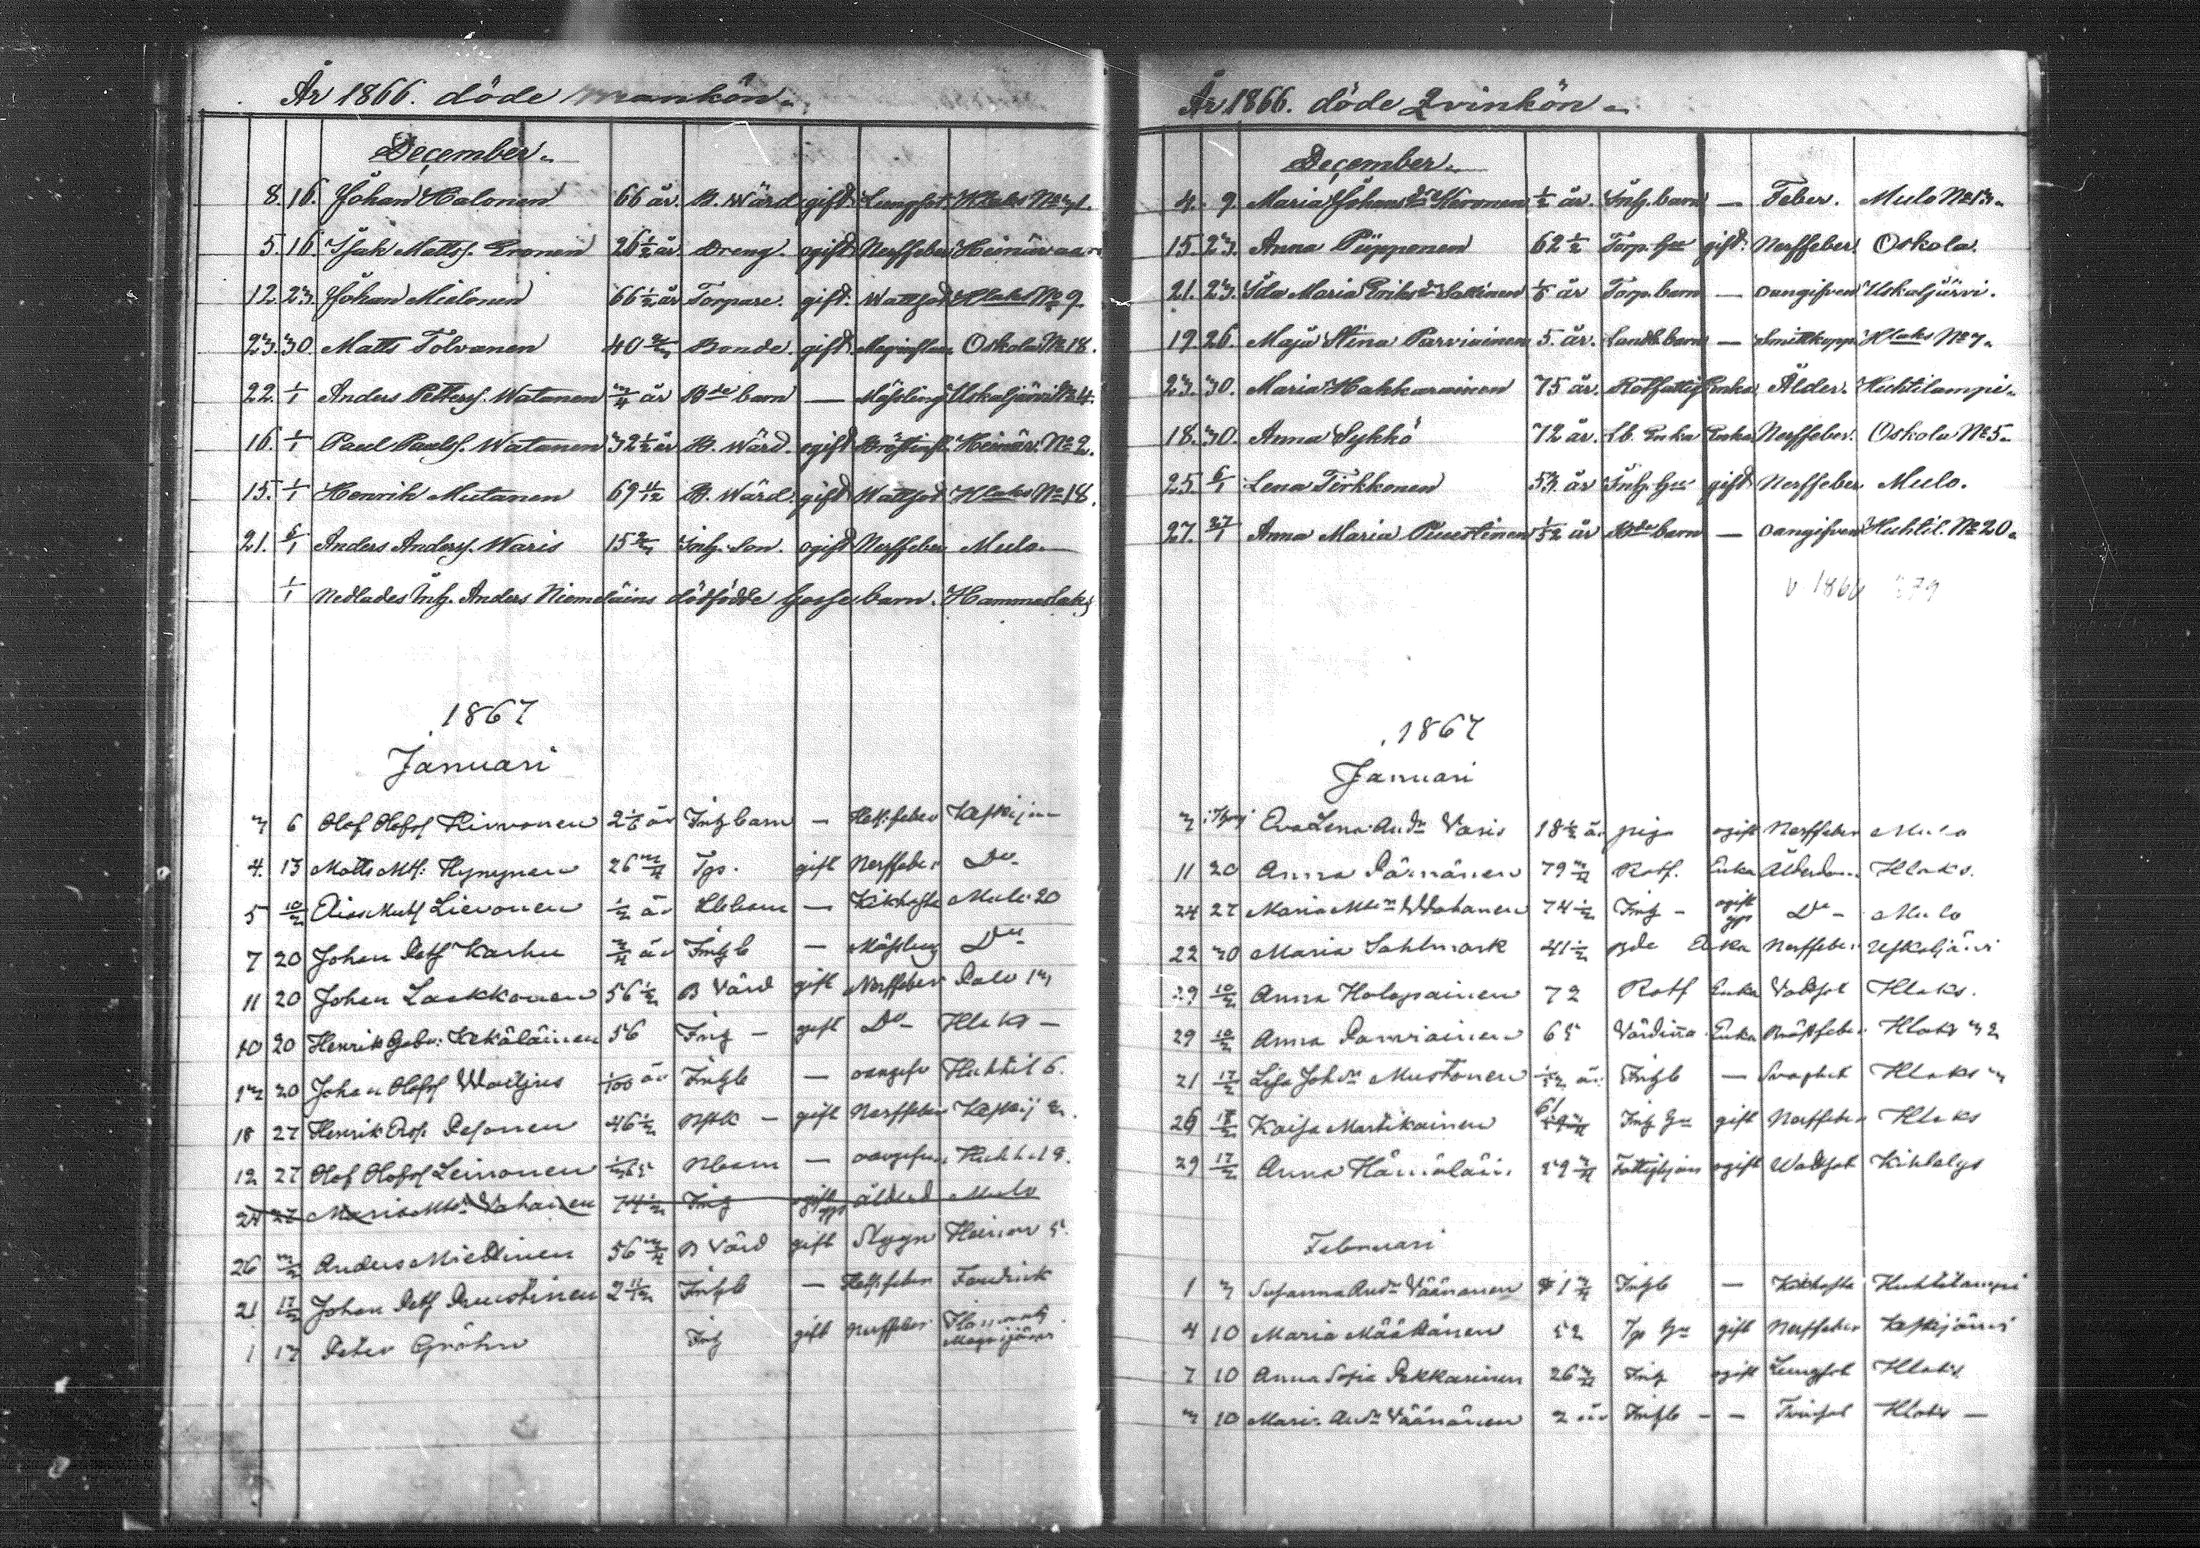 År 1866. döde mankön.
December.
8. 16. Johan Halonen 66 år. B. Wärd gift Lungsot Hlaks No 31.
5. 16. Isak Mattss. Eronen 26 1/2 år Dreng. ogift Nerffeber Heinävaara
12 23 Johan Mielonen 66 1/2 år Torpare. gift. Wattsot Hlaks No 9.
23. 30. Matts Tolvanen 40 Bonde. gift Oskola No 18.
22. 1/1 Anders Petterss. Watanen 3/4 år Bde barn — Mässling Uskaljärvi No 4.
16. 1/1 Paul Paulss. Watanen 32 1/2 år B. Wärd. ogift Heinäv. No 2.
15. 1/1 Henrik Mutanen 69 11/12 B. Wärd. gift Wattsot Hlaks No 18.
21. 6/1 Anders Anderss. Waris 15 Inh. Son. ogift Nerffeber Mulo
1/1 Nedlades Inh. Anders Niemeläins dödfödde Gosse barn. Hammaslaks
1867
Januari
3 6 Olof Olofss Hirvonen 2 1/6 år Inhbarn — Het.feber Keskij
4. 13 Matts Mtts. Hyvynen 26 3/4 Tps. gift Nerffeber Do
5 10/2 Lievonen 1/2 år — Kikhosta Mulo 20
7 20 Johan Petss Karhu 3/4 år Inhb — Mässling Do
11 20 Johan Laakkonen 56 1/2 B Värd gift Nerffeber Palo 13
10 20 Henrik Gabr: Kekäläinen 56 Inh — gift Do — Hlaks —
13 20 Johan Olofss 1/100 år Inhb — oangifv Huhtil 6.
18 27 Henrik Pesonen 46 1/2 — gift Nerffeber
12 27 Olof Olofss Leinonen — oangifv Huhtil 9.
24 27 Maria Mtsdr Vatanen 74 1/2 Inh ogift älderd Mulo
26 3/2 Anders Miettinen 56 3/4 B Värd gift Heinäv 5.
21 17/2 Johan Petss Puustinen 2 11/12 Inhb — Het.feber
1 13 Peter Gröhn Inh gift Nerffeber
År 1866. döde Qvinkön
December.
4. 9. Maria Johansdr Hirvonen 1/2 år. Inh. barn — Feber. Mulo No 13.
15. 23. Anna Piipponen 62 1/2 Torp. Hu gift. Nerffeber. Oskola.
21. 23. Ida Maria Eriksdr 1/8 år Torp. barn — oangifven Uskaljärvi.
19 26. Maja Stina Parviainen 5. år. Landb. barn — Smittkopp. Hlaks No 7.
23. 30. Maria Hakkarainen 75 år. Rotfattig Enka Ålder. Huhtilampi.
18. 30. Anna Sykkö 72 år. Lb. Enka Enka Nerffeber. Oskola No 5.
25. 6/1 Lena Tirkkonen 53. år Inh. Hu gift Nerffeber Mulo.
27. 27/1 Anna Maria Puustinen 1/52 år Bde barn — oangifven Huhtil. No 20.
1866 79
1867
Januari
3 Eva Lena Andr Varis 18 1/2 år piga ogift Nerffeber Mulo
11 20 Anna 79 3/4 Rotf. Enka Ålderdom Hlaks.
24 27 Maria Mtsdr Watanen 74 1/2 Inh — ogift Do — Mulo
22 30 Maria Sahlmark 41 1/2 Bde Enka Nerffeber Uskaljärvi
29 10/2 Anna Holopainen 72 Rotf Enka Vattsot Hlaks.
29 10/2 Anna Parviainen 65 Värdinna Enka Hlaks 32
21 17/2 Lisa Johdr Mustonen 1/52 år Inhb — Hlaks 3
26 Kaisa Martikainen 61 Inh Hu gift Nerffeber Hlaks
29 17/2 Anna Hämäläin 59 3/4 ogift Wattsot
Februari
1 3 Susanna Andr Väänänen 1 3/4 Inhb — Kikhosta Huhtilampi
4 10 Maria Määttänen 52 Tp Hu gift Nerffeber Keskijärvi
7 10 Anna Sofia Pekkarinen 26 3/4 Inh ogift Lungsot Hlaks
3 10 Maria Andr Väänänen 2 år Inhb — — Hlaks —